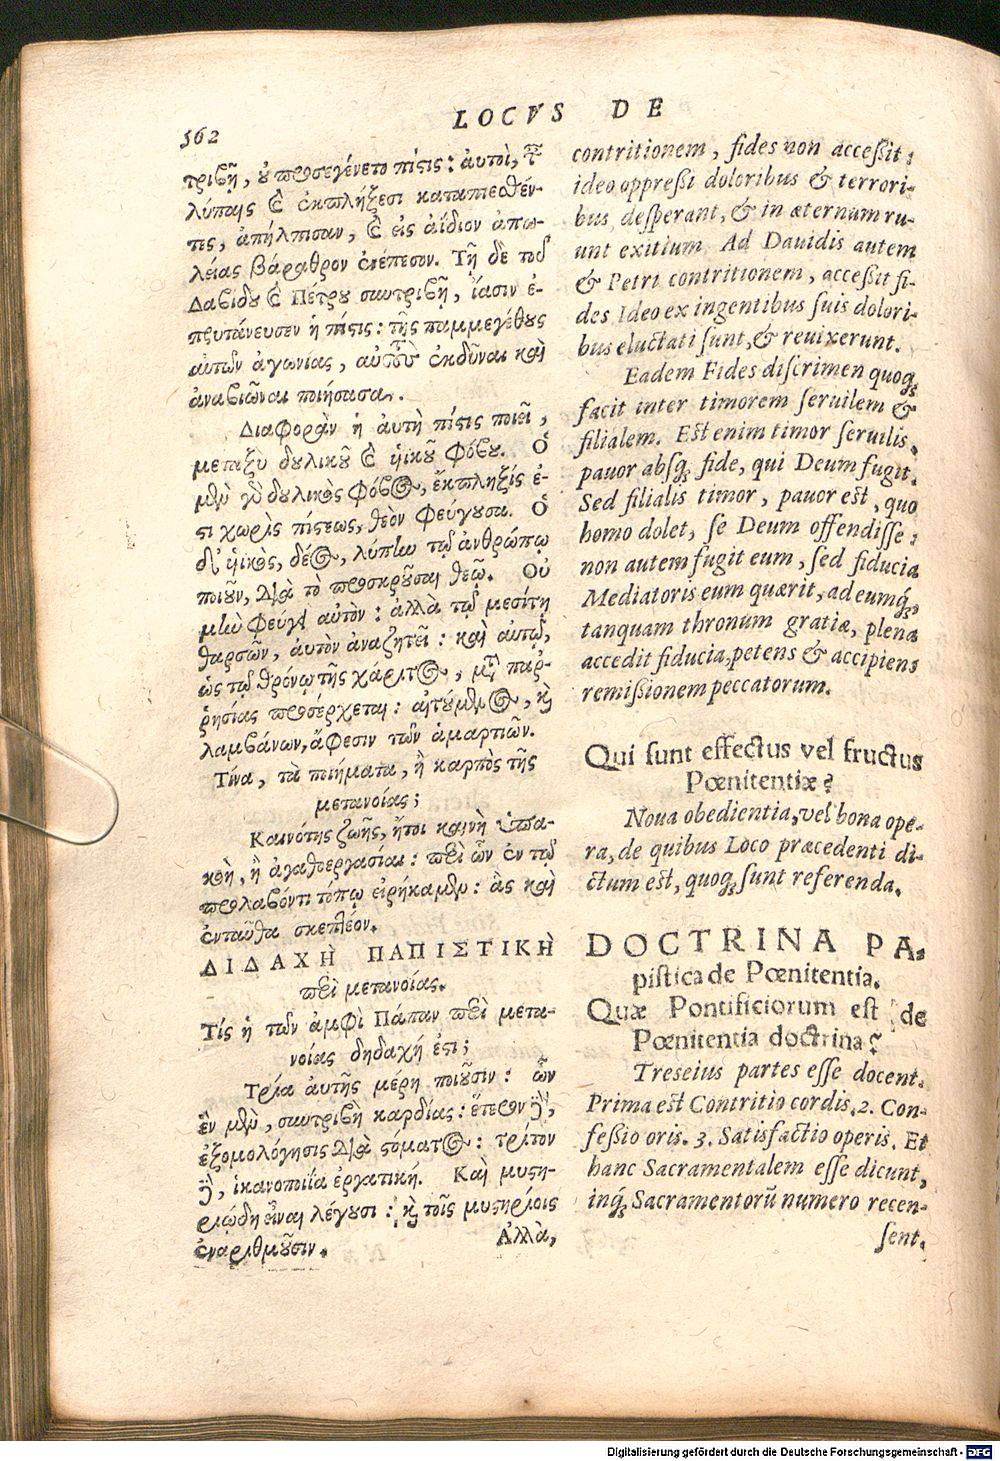 562
LOCVS DE
τριβῇ, οὐ προσεγένετο πίστις: αὐτοὶ, τ
λύπαις καὶ ἐκπλήξεσι καταπιεσθέν-
τες, ἀπήλπισαν, καὶ εἰς ἀΐδιον ἀπω-
λείας βάραθρον ἐνέπεσον. Τῇ δὲ τοῦ
Δαβίδου καὶ Πέτρου συντριβῇ, ἴασιν ἐ-
πρυτάνευσεν ἡ πίστις: τῆς παμμεγέθους
αὐτῶν ἀγωνίας, αὐτοὺς ἐκδῦναι καὶ
ἀναβιῶναι ποιήσασα.
Διαφορὰν ἡ αὐτὴ πίστις ποιεῖ,
μεταξὺ δουλικοῦ καὶ υἱικοῦ φόβου. Ὁ
μὲν γὸ δουλικὸς φόβος, ἔκπληξίς ἐ-
στι χωρὶς πίστεως, θεὸν φεύγουσα. Ὁ
δὲ υἱικὸς, δέος, λύπην τῷ ἀνθρώπῳ
ποιοῦν, διὰ τὸ προσκροῦσαι θεῷ. Οὐ
μὴν φεύγει αὐτὸν: ἀλλὰ τῷ μεσίτῃ
θαρσῶν, αὐτὸν ἀναζητεῖ: καὶ αὐτῷ,
ὡς τῷ θρόνῳ τῆς χάριτος, μετὰ παρ-
ρησίας προσέρχεται: αἰτούμενος, καὶ
λαμβάνων, ἄφεσιν τῶν ἁμαρτιῶν.
Τίνα, τὰ ποιήματα, ἢ καρπὸς τῆς
μετανοίας;
Καινότης ζωῆς, ἤτοι καινὴ ὑπα-
κοὴ, ἢ ἀγαθοεργασίαι: περὶ ὧν ἐν τῷ
προλαβόντι τόπῳ εἰρήκαμεν: ἃς καὶ
ἐνταῦθα σκεπτέον.
ΔΙΔΑΧῊ ΠΑΠΙΣΤΙΚῊ
περὶ μετανοίας.
Τίς ἡ τῶν ἀμφὶ Πάπαν περὶ μετα-
νοίας διδαχή ἐστι;
Τρία αὐτῆς μέρη ποιοῦσιν: ὧν
ἓν μὲν, συντριβὴ καρδίας: ἕτερον δὲ,
ἐξομολόγησις διὰ στόματος: τρίτον
δὲ, ἱκανοποιΐα ἐργατική. Καὶ μυστη-
ριώδη εἶναι λέγουσι: καὶ τοῖς μυστηρίοις
ἐναριθμοῦσιν.
Ἀλλὰ,
contritionem, fides non acceßit:
ideo oppreßi doloribus & terrori-
bus desperant, & in æternum ru-
unt exitium. Ad Dauidis autem
& Petri contritionem, acceßit fi-
des Ideo ex ingentibus suis dolori-
bus eluctati sunt, & reuixerunt.
Eadem Fides discrimen quoq;
facit inter timorem seruilem &
filialem. Est enim timor seruilis,
pauor absq; fide, qui Deum fugit.
Sed filialis timor, pauor est, quo
homo dolet, se Deum offendisse:
non autem fugit eum, sed fiducia
Mediatoris eum quærit, ad eumq́;
tanquam thronum gratiæ, plena
accedit fiducia, petens & accipiens
remißionem peccatorum.
Qui sunt effectus vel fructus
Pœnitentiæ?
Noua obedientia, vel bona ope-
ra, de quibus Loco præcedenti di-
ctum est, quoq; sunt referenda.
DOCTRINA PA-
pistica de Pœnitentia.
Quæ Pontificiorum est de
Pœnitentia doctrina?
Tres eius partes esse docent.
Prima est Contritio cordis. 2. Con-
feßio oris. 3. Satisfactio operis. Et
hanc Sacramentalem esse dicunt,
inq́; Sacramentorũ numero recen-
sent.
Digitalisierung gefördert durch die Deutsche Forschungsgemeinschaft - DFG